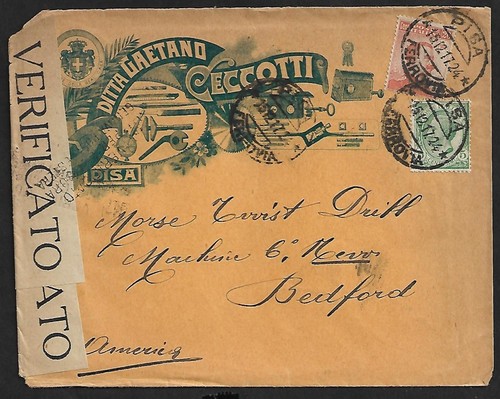 DITTA GAETANO
CECCOTTI
PISA
VERIFICATO
ATO
PISA
15.12.17.24
FERROVIA
PISA
FERROVIA
Morse Twist Drill
Machine Co. New
Bedford
America